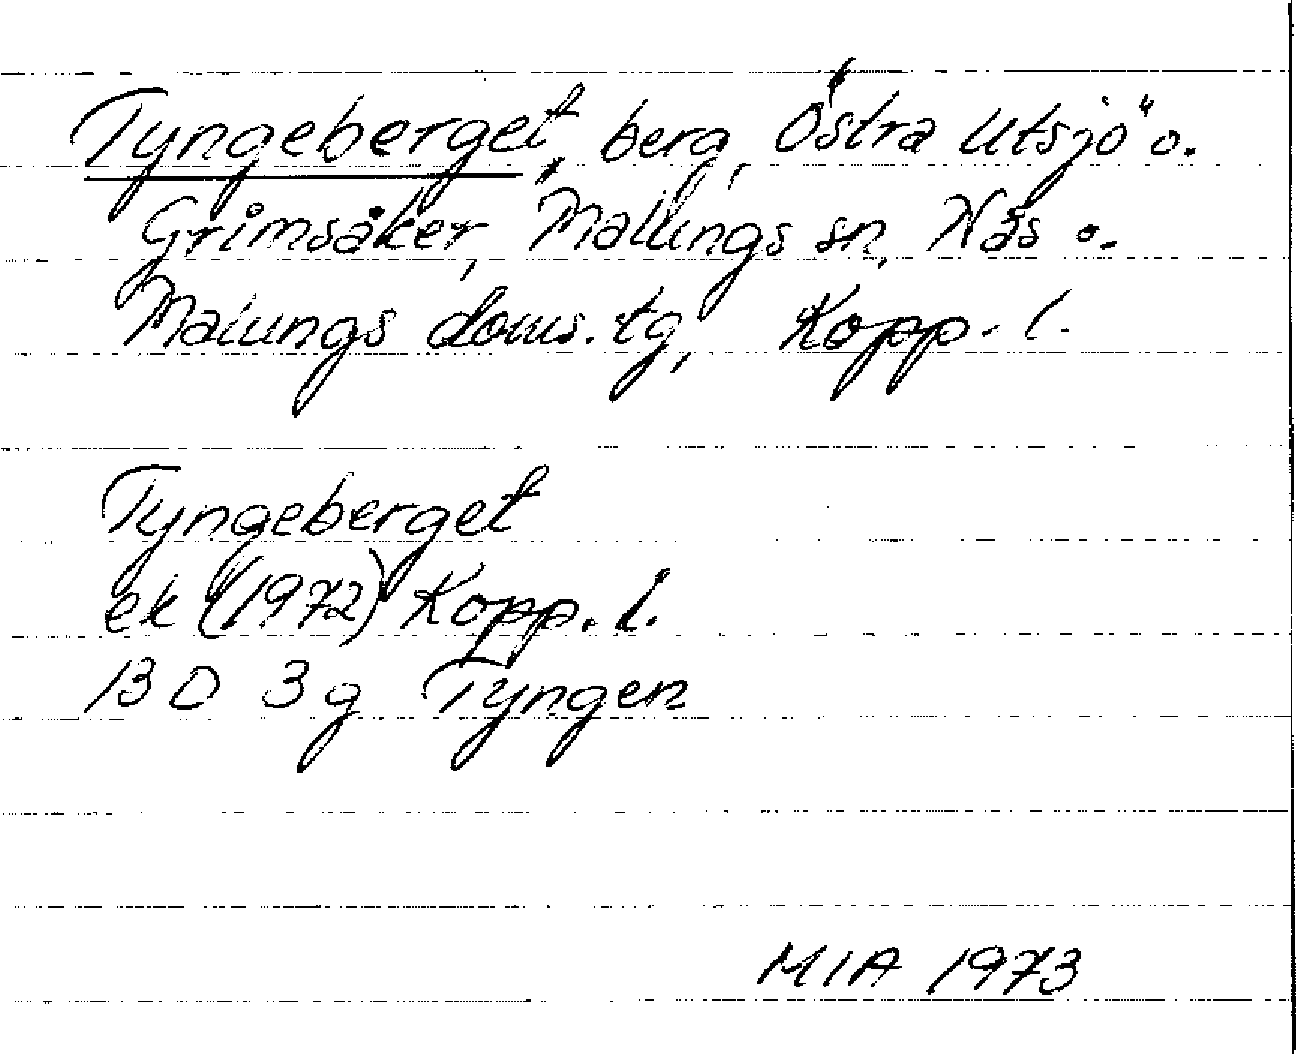 Tyngeberget, berg, Östra Utsjö o.
Grimsåker, Malungs sn, Nås o.
Malungs doms. tg, Kopp. l.
Tyngeberget
ek (1972) Kopp. l.
13 D 3 g Tyngen
MIA 1973